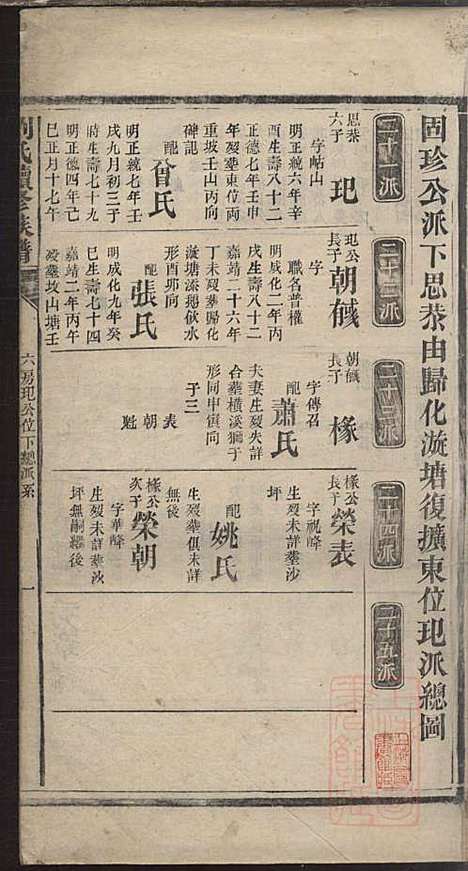 固珍公派下思恭由歸化漩塘復擴東位玘派總圖
二十一派
二十二派
二十三派
二十四派
二十五派
思恭
六子
玘
字岵山
明正統六年辛
酉生壽八十二
正德七年壬申
年歿塟東位両
重坡壬山丙向
碑記
配
曾氏
明正統七年壬
戌九月初三子
時生壽七十九
明正德四年己
巳正月十七午
玘公
長子
朝鋮
字
職名普權
明成化二年丙
戌生壽八十二
嘉靖二十六年
丁未歿塟歸化
漩塘添毬伙水
形酉卯向
配
張氏
明成化九年癸
巳生壽七十四
嘉靖二年丙午
歿塟坟山塘壬
朝鋮
長子
椽
字傳召
配
蕭氏
夫妻生歿失詳
合塟橫溪獅于
形同申寅向
子三
表
朝
魁
椽公
長子
榮表
字祝峰
生歿未詳塟沙
坪
配
姚氏
生歿塟俱未詳
無後
椽公
次子
榮朝
字華峰
生歿未詳塟沙
坪無嗣繼後
劉氏續修族譜
六房玘公位下總派系
一